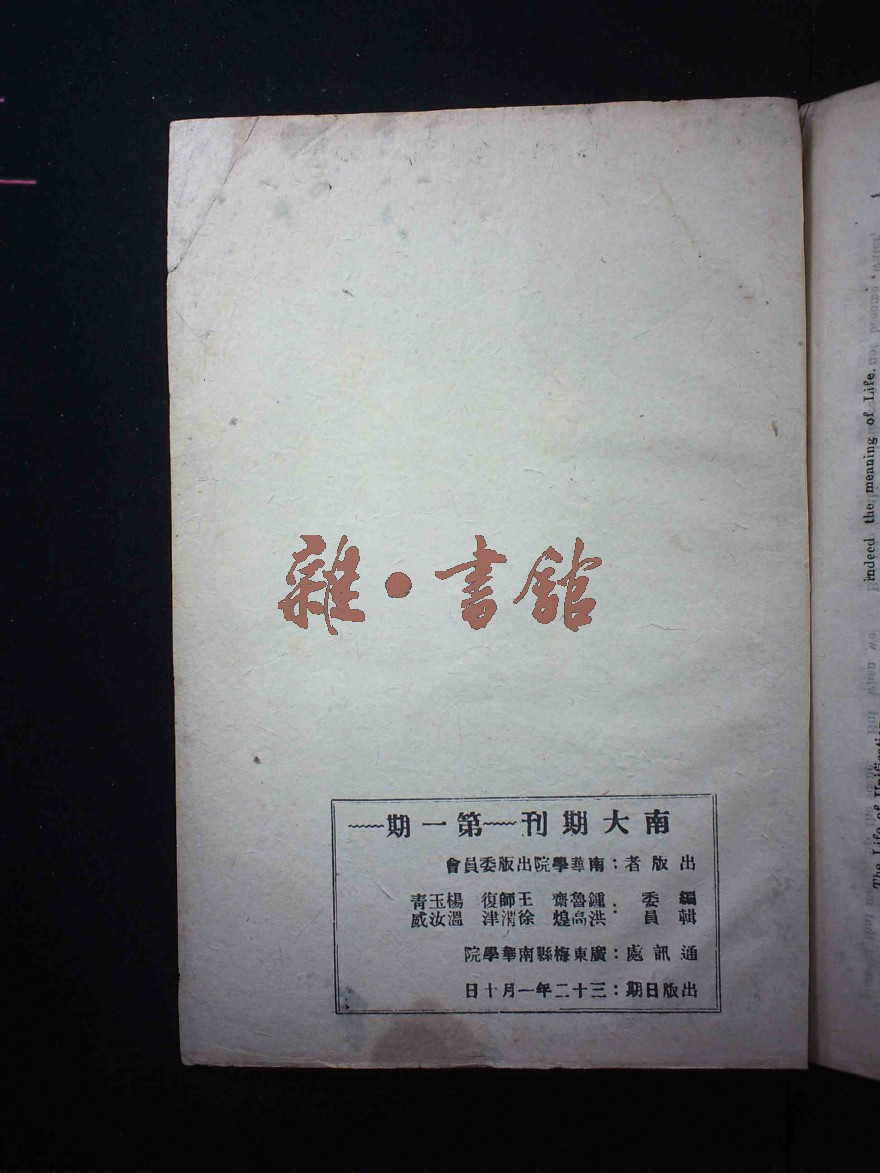 雜·書館
南大期刊第一期
出版者：南華學院出版委員會
編委：鍾魯齋 王師復 楊玉青
輯員 洪高煌 徐渭津 溫汝威
通訊處：廣東梅縣南華學院
出版日期：三十二年一月十日
indeed the meaning of Life.
The Life of Unification